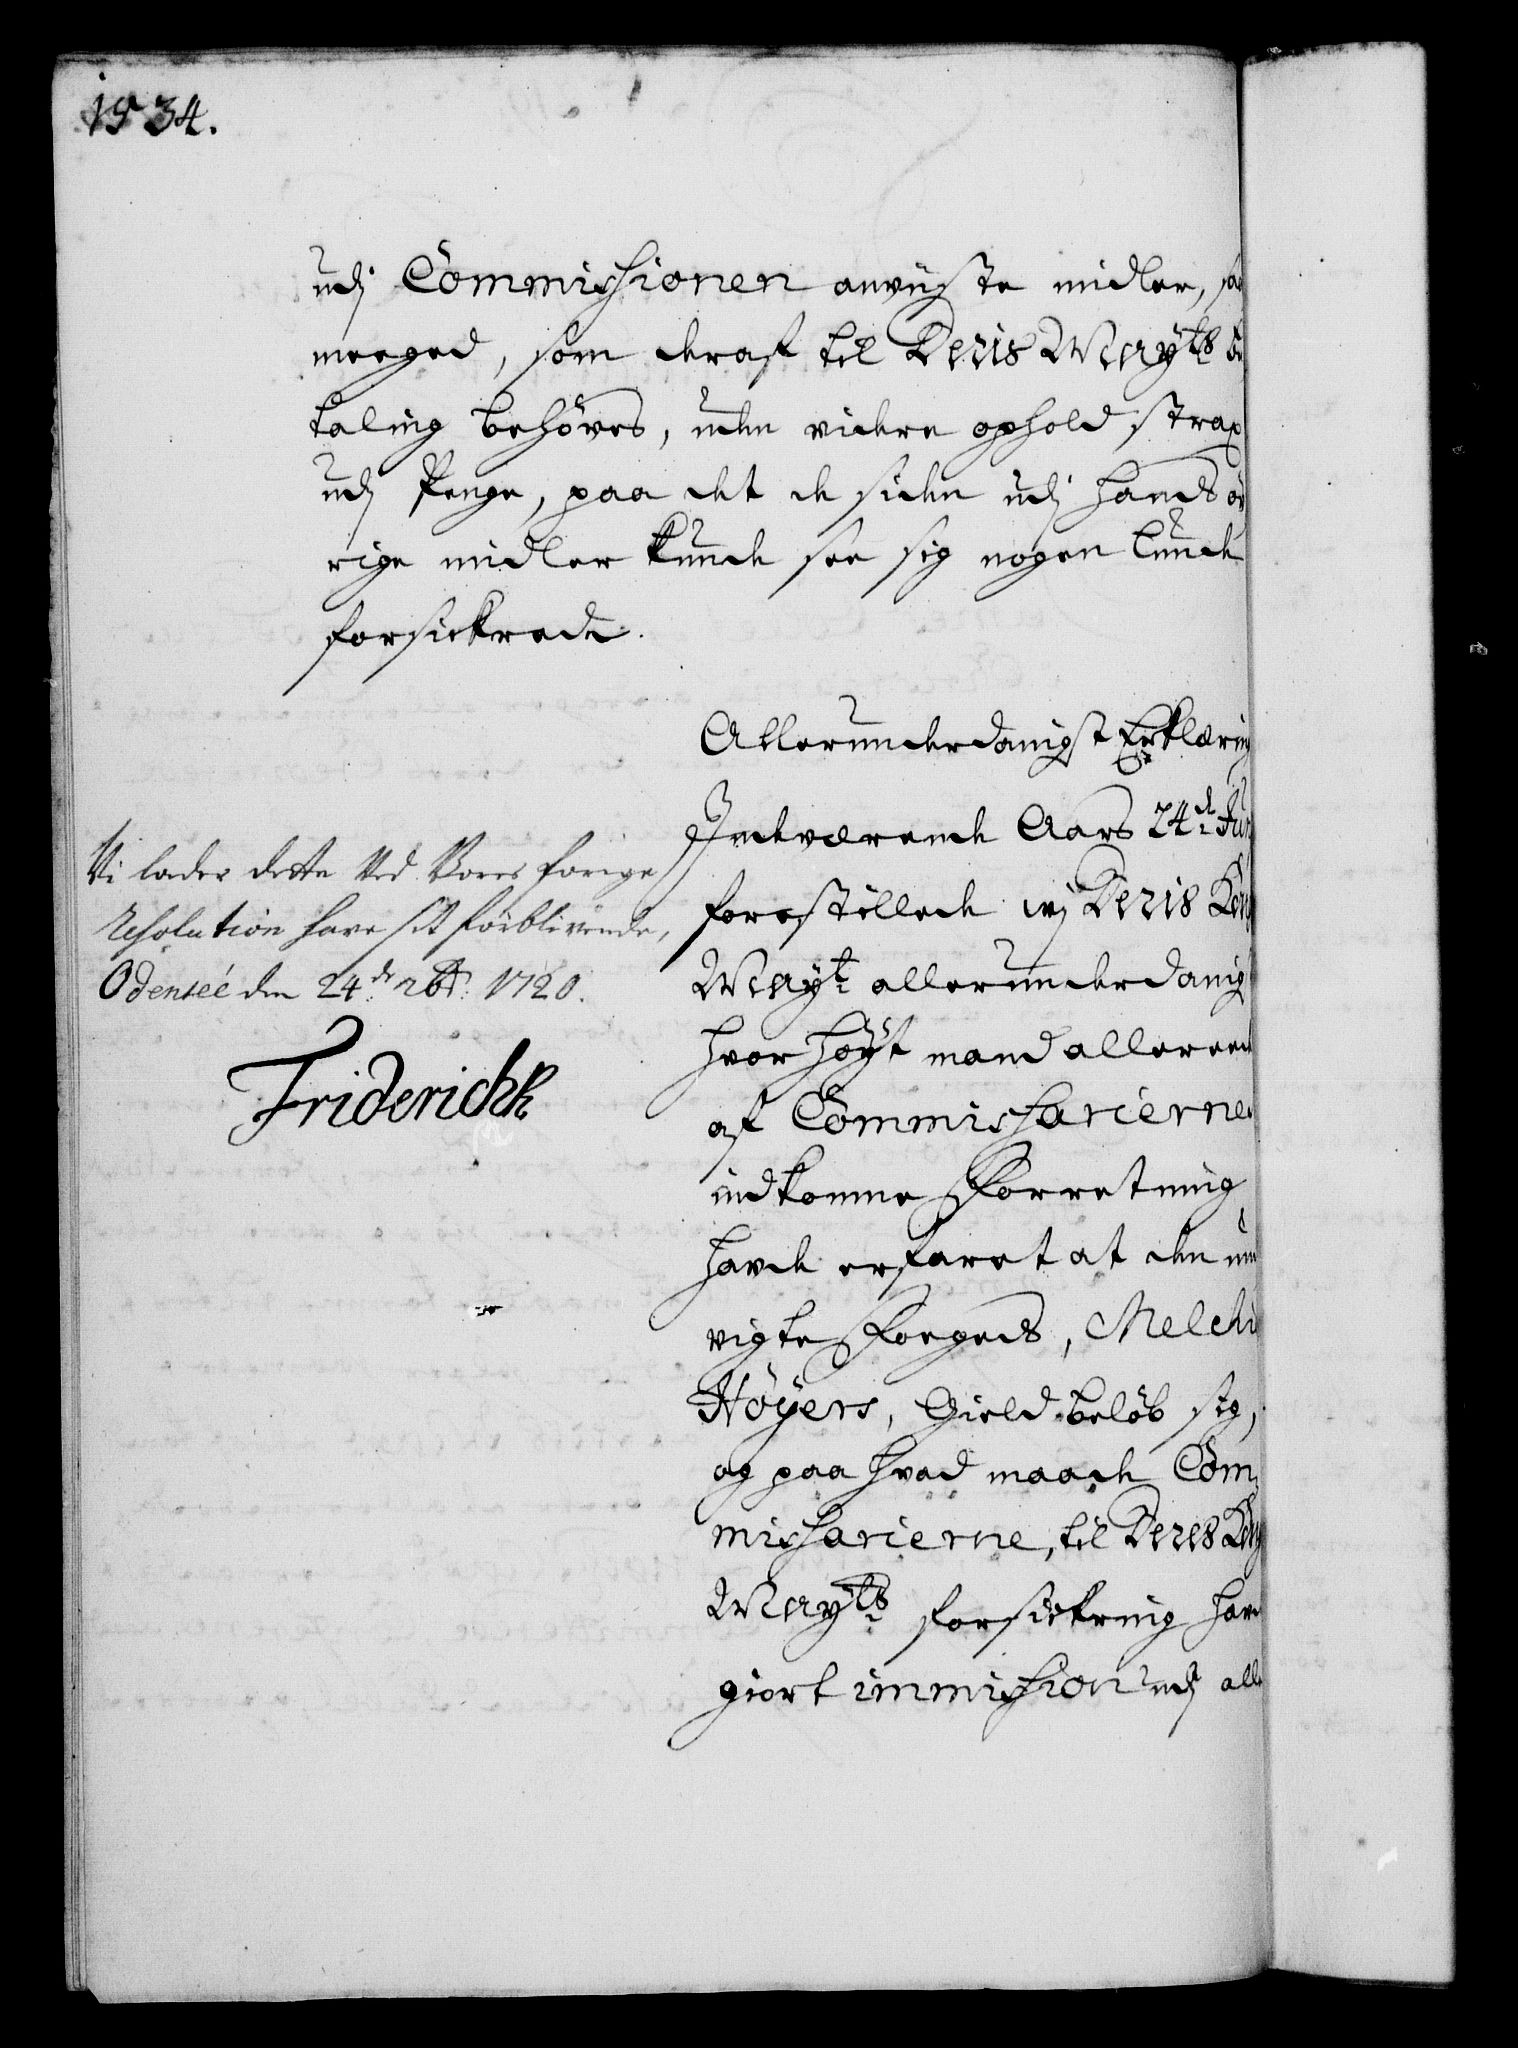 1534.
udj Commissionen anviiste midler, saa
meeged, som deraf til Deris Mayts be
taling behöves, uden videre ophold strax
udj Penge, paa det de siden udj hands öv
rige midler kunde see sig nogenlunde
forsickrede.
Allerunderdanigst Erklæring
Indeværende Aars 24de Jun
forestillede wj Deris Kong
Mayt allerunderdanig
hvor høyt mand allereede
af Commissariernes
indkomne Forretning
havde erfaret at den und
vigte Fogeds, Melchi
Høyers, Gield beløb sig,
og paa hvad maade Com
missarierne, til Deres Kong
Mayts forsickring havde
giort immission udj alle
Vi lader dette Ved Vores forige
resolution have sit forblivende,
Odenseé den 24de 7br: 1720.
FriderichR